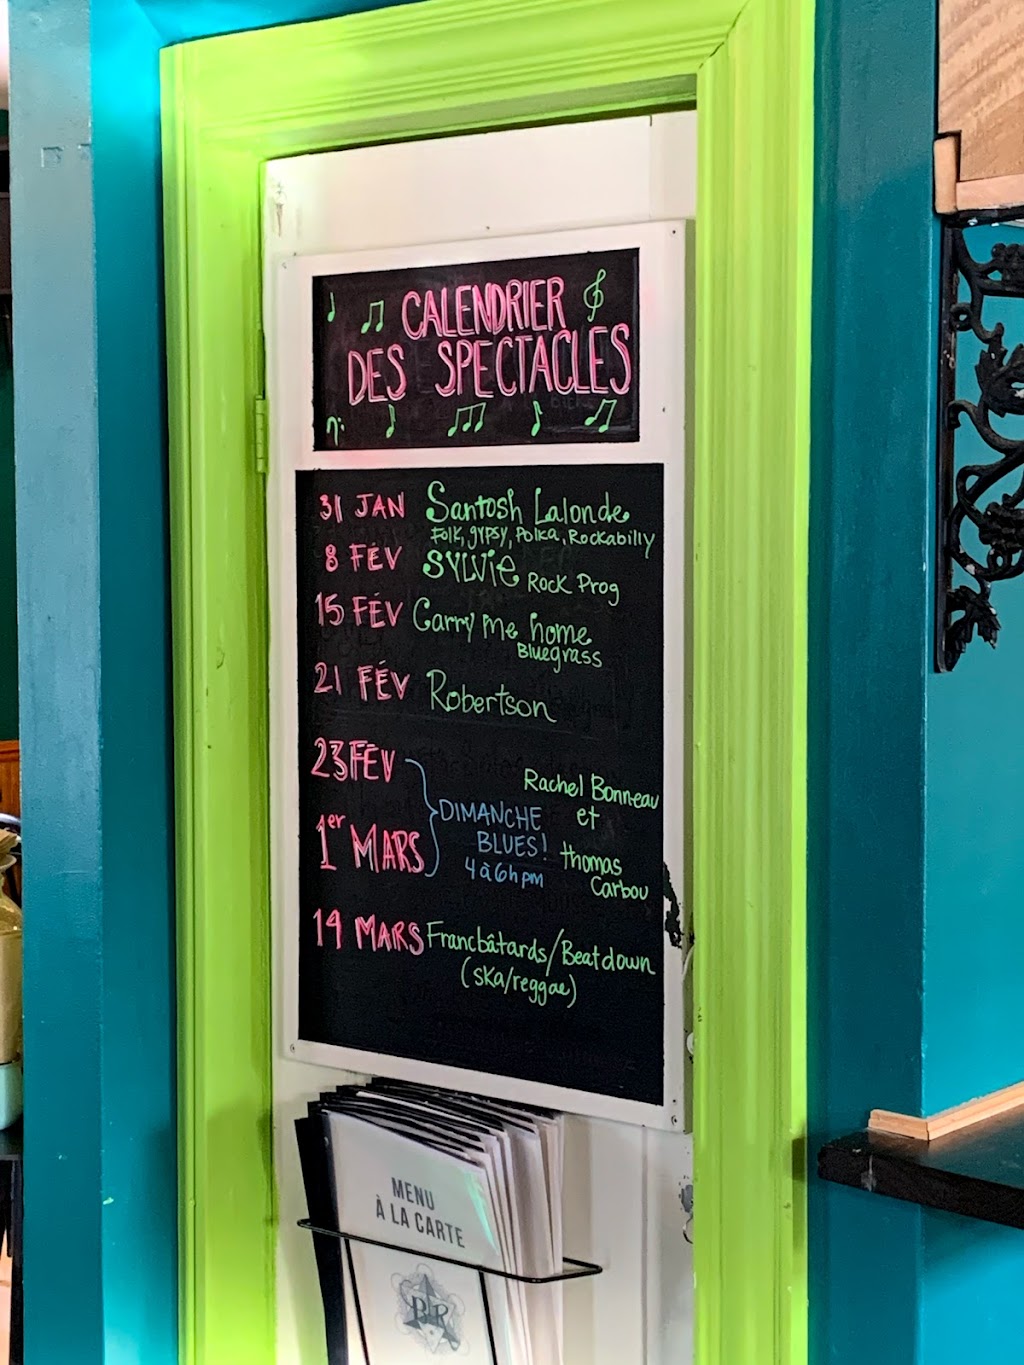 CALENDRIER
DES SPECTACLES
31 JAN Santosh Lalonde
Folk, gypsy, Polka, Rockabilly
8 FÉV SYLViE Rock Prog
15 FÉV Carry me home
Bluegrass
21 FÉV Robertson
23 FÉV
1er MARS
DIMANCHE
BLUES!
4 à 6h pm
Rachel Bonneau
et
thomas
Carbou
14 MARS Francbâtards/Beatdown
(ska/reggae)
MENU
À LA CARTE